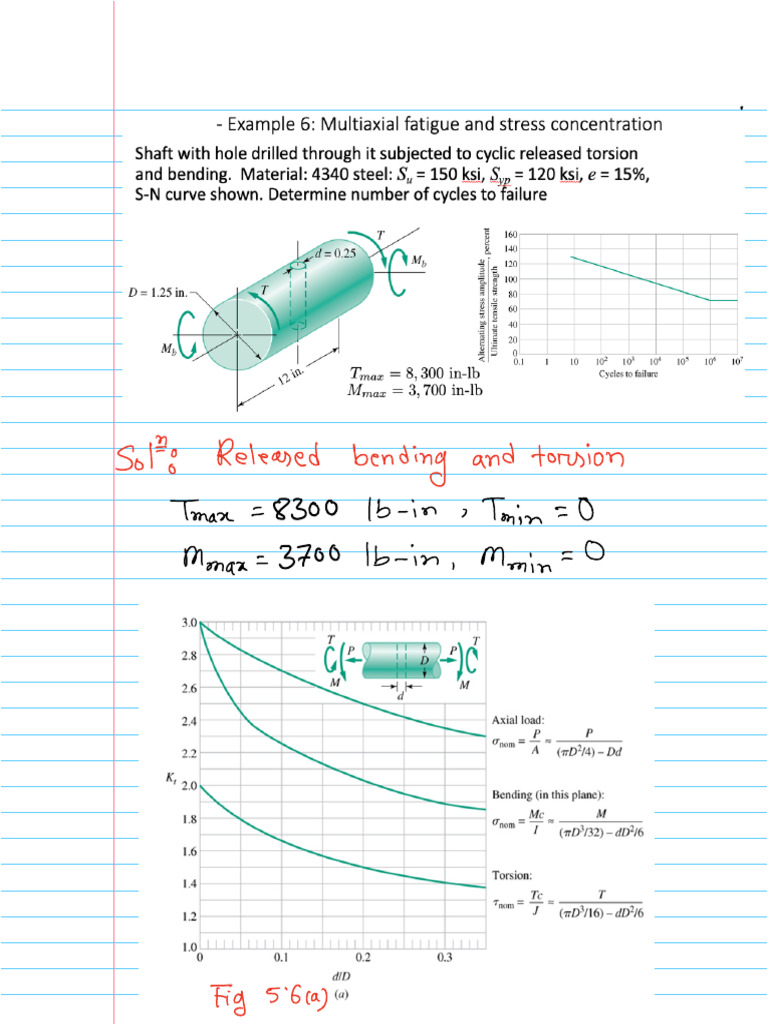 - Example 6: Multiaxial fatigue and stress concentration
Shaft with hole drilled through it subjected to cyclic released torsion
and bending. Material: 4340 steel: Su = 150 ksi, Syp = 120 ksi, e = 15%,
S-N curve shown. Determine number of cycles to failure
T
d = 0.25
Mb
D = 1.25 in.
T
Mb
12 in.
Tmax = 8,300 in-lb
Mmax = 3,700 in-lb
Alternating stress amplitude, percent
Ultimate tensile strength
160
140
120
100
80
60
40
20
0
0.1 1 10 10² 10³ 10⁴ 10⁵ 10⁶ 10⁷
Cycles to failure
Solⁿ: Released bending and torsion
Tmax = 8300 lb-in, Tmin = 0
Mmax = 3700 lb-in, Mmin = 0
3.0
2.8
2.6
2.4
2.2
Kt 2.0
1.8
1.6
1.4
1.2
1.0
0 0.1 0.2 0.3
d/D
T P D P T
M d M
Axial load:
σnom = P/A ≈ P/((πD²/4) – Dd)
Bending (in this plane):
σnom = Mc/I ≈ M/((πD³/32) – dD²/6)
Torsion:
τnom = Tc/J ≈ T/((πD³/16) – dD²/6)
Fig 5.6(a) (a)